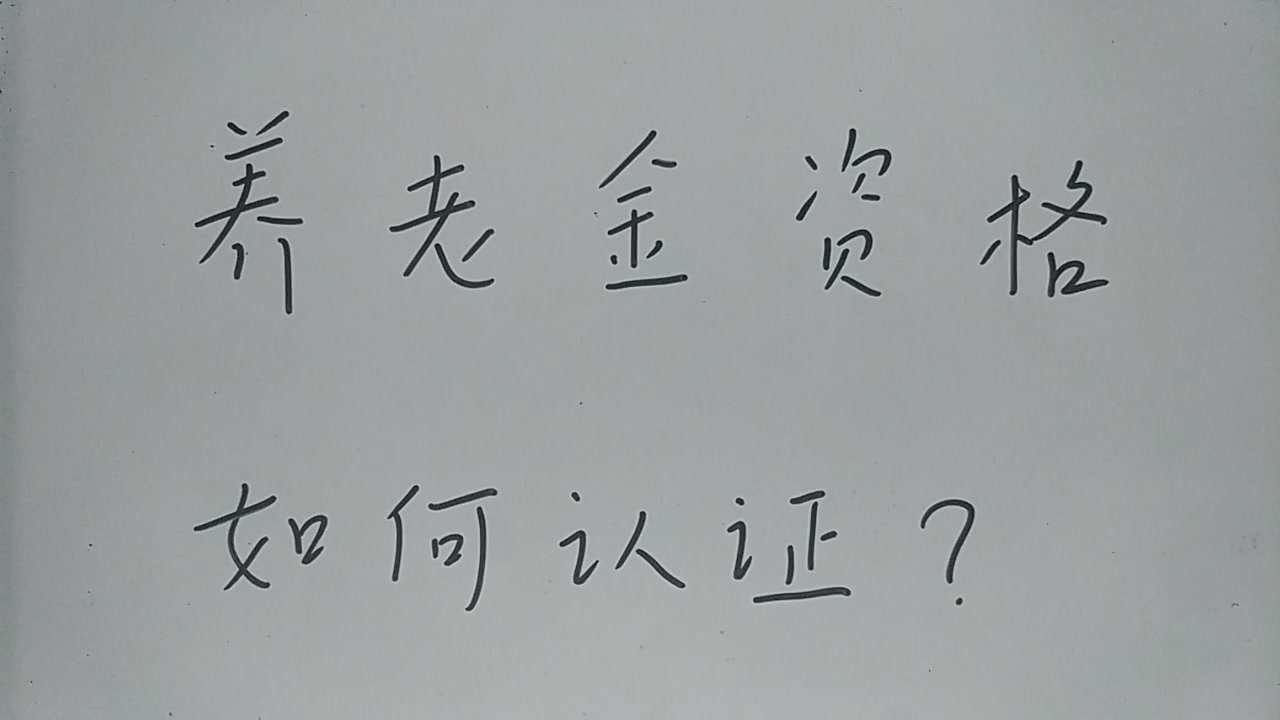 养老金资格
如何认证?